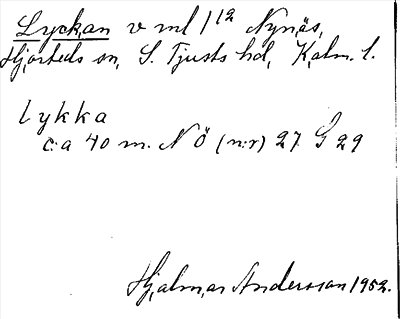 Lyckan v ml 1 12 Nynäs,
Hjorteds sn, S. Tjusts hd, Kalm. l.
Lykka
c:a 40 m. NÖ (n:r) 27 G 29
Hjalmar Andersson 1952.